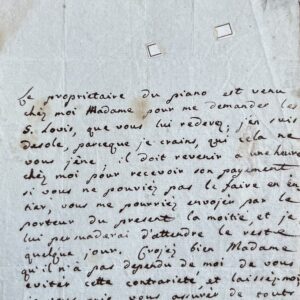 Le proprietaire du piano est venu
chez moi Madame pour me demander les
5. Louis, que vous lui redevez; j'en suis
desolé, parceque je crains, que cela ne
vous jène; il doit revenir a heures
chez moi pour recevoir son payement
si vous ne pouviez pas le faire en en
tier, vous me pourriez envoyer par le
porteur du present la moitié, et je
lui persuaderai d'attendre le reste
quelque jour. Croyez bien Madame
qu'il n'a pas dependu de moi de vous
eviter cette contrarieté, et laissez moi
vous assurer de